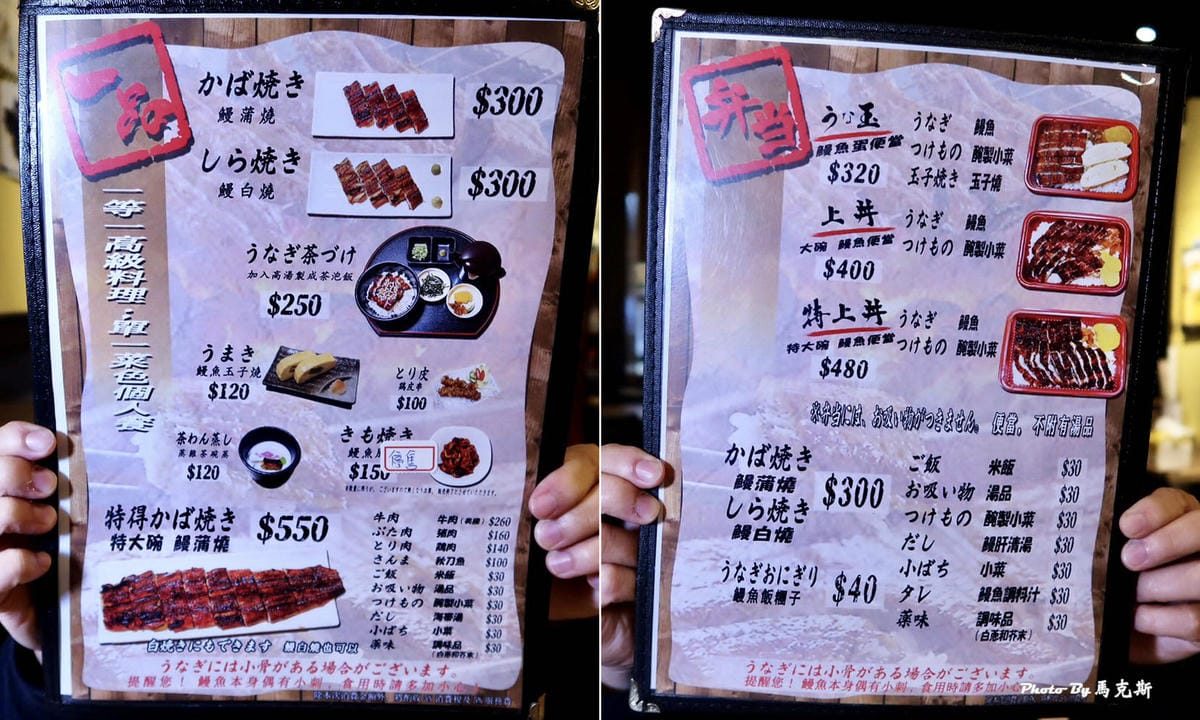 一品
一等一高級料理，單一菜色個人餐
かば焼き
鰻蒲燒
$300
しら焼き
鰻白燒
$300
うなぎ茶づけ
加入高湯製成茶泡飯
$250
うまき
鰻魚玉子燒
$120
とり皮
鷄皮串
$100
茶わん蒸し
蒸雞茶碗蒸
$120
きも焼き
鰻魚
$150
停售
特得かば焼き
特大碗 鰻蒲燒
$550
白焼きにもできます 鰻白燒也可以
牛肉 牛肉(美國) $260
ぶた肉 豬肉 $160
とり肉 鷄肉 $140
さんま 秋刀魚 $100
ご飯 米飯 $30
お吸い物 湯品 $30
つけもの 醃製小菜 $30
だし 海帶湯 $30
小ばち 小菜 $30
薬味 調味品 $30
(白蔥和芥末)
うなぎには小骨がある場合がございます。
提醒您！ 鰻魚本身偶有小刺，食用時請多加小心！
弁当
うな玉
鰻魚蛋便當
$320
うなぎ 鰻魚
つけもの 醃製小菜
玉子焼き 玉子燒
上丼
大碗 鰻魚便當
$400
うなぎ 鰻魚
つけもの 醃製小菜
特上丼
特大碗 鰻魚便當
$480
うなぎ 鰻魚
つけもの 醃製小菜
※弁当には、お吸い物がつきません。 便當，不附有湯品
かば焼き
鰻蒲燒
しら焼き
鰻白燒
$300
うなぎおにぎり
鰻魚飯糰子
$40
ご飯 米飯 $30
お吸い物 湯品 $30
つけもの 醃製小菜 $30
だし 鰻肝清湯 $30
小ばち 小菜 $30
タレ 鰻魚調料汁 $30
薬味 調味品 $30
(白蔥和芥末)
うなぎには小骨がある場合がございます。
提醒您！ 鰻魚本身偶有小刺，食用時請多加小心
Photo By 馬克斯